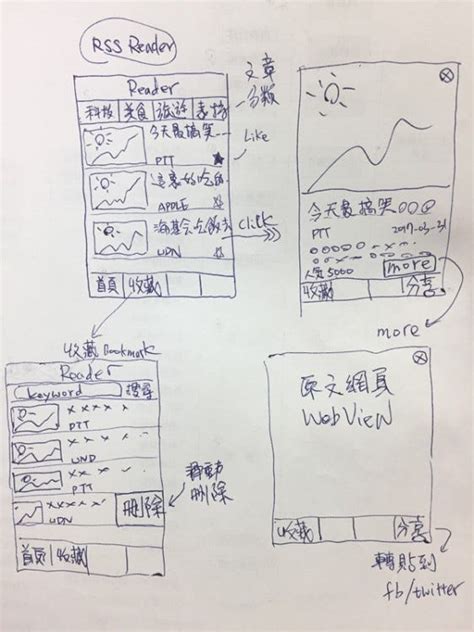 RSS Reader
Reader
文章
分類
科技 美食 旅遊
今天最搞笑
PTT
Like
APPLE
UDN
Click
首頁 收藏
今天最搞笑
PTT 2017-03-31
人氣 5000 more
收藏 分享
more
收藏 Bookmark
Reader
keyword 搜尋
xxxx
PTT
xxxx
UND
xxxx
PTT
xxxxx
UDN 刪除
刪除
首頁 收藏
原文網頁
WebView
收藏 分享
轉貼到
fb/twitter